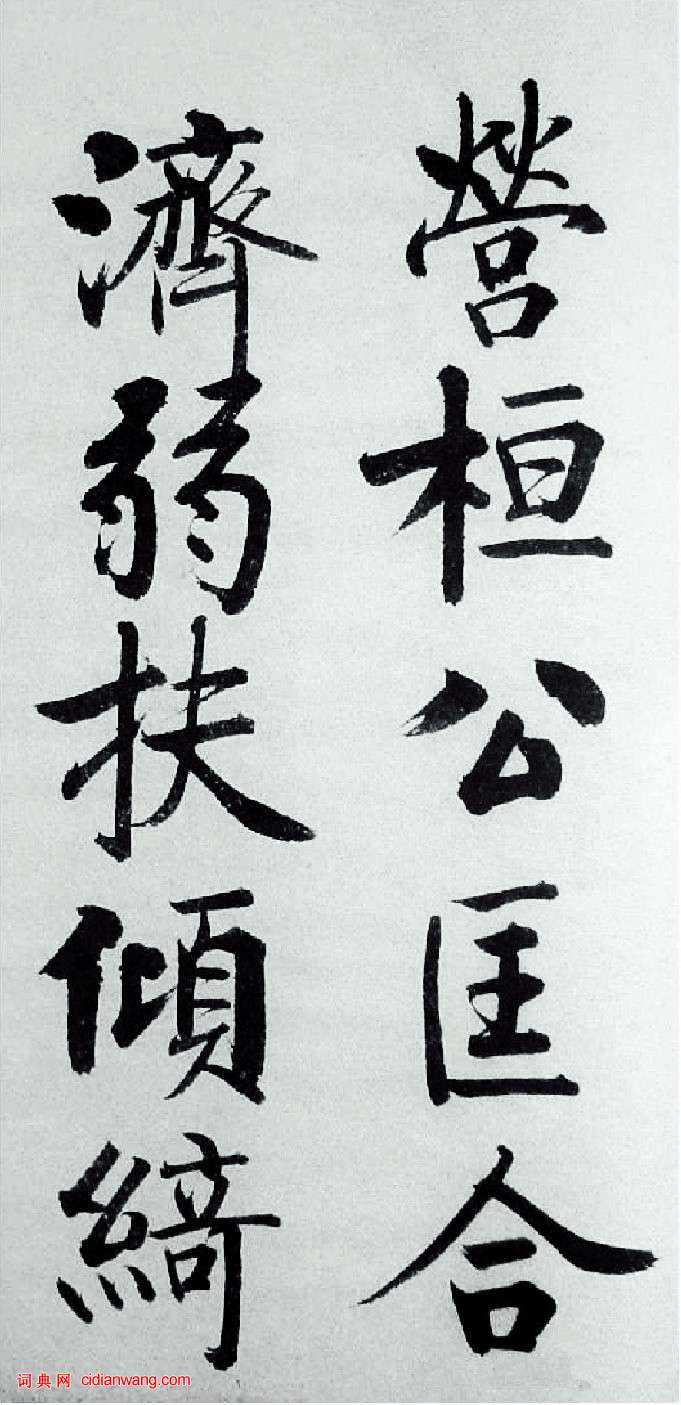 營桓公匡合
濟弱扶傾綺
词典网 cidianwang.com